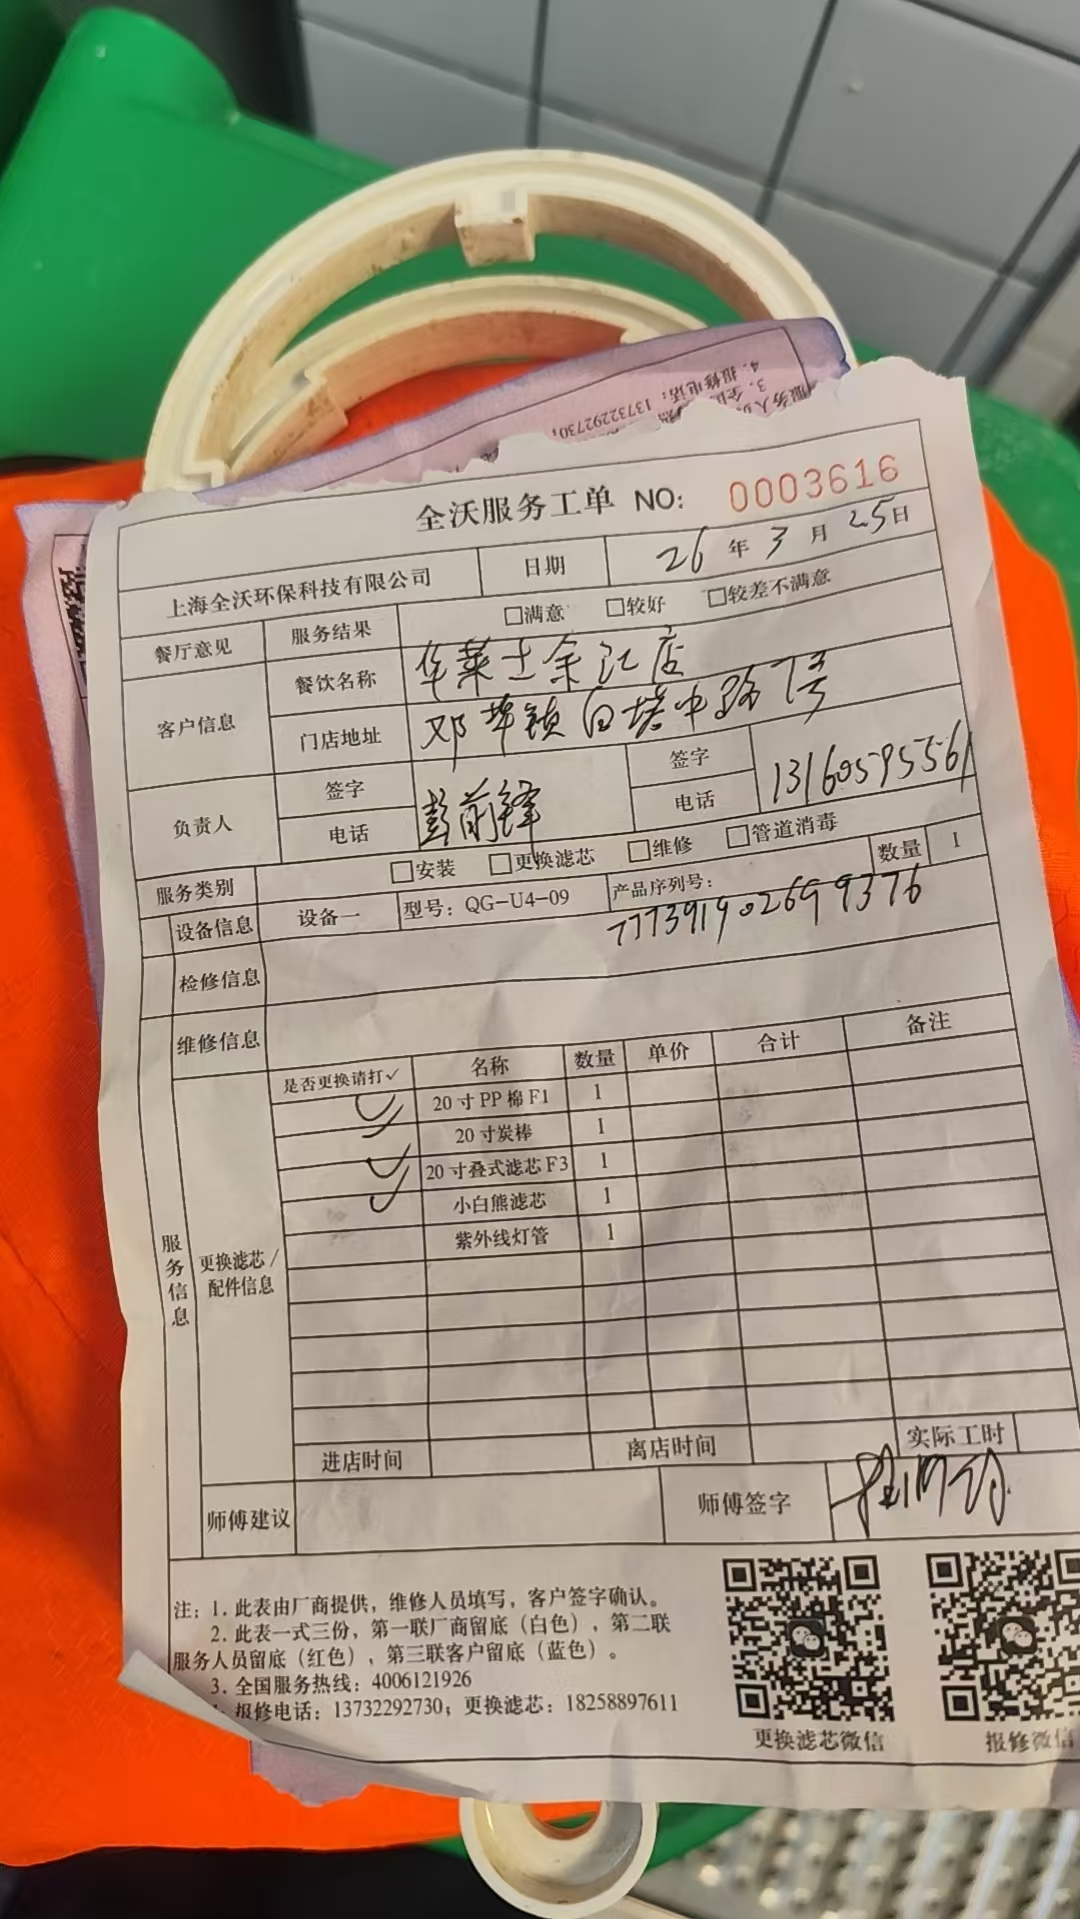 4. 报修电话：13732292730；
全沃服务工单 NO： 0003616
上海全沃环保科技有限公司 日期 26 年 3 月 25 日
餐厅意见 服务结果 □满意 □较好 □较差不满意
客户信息 餐饮名称 华莱士余江店
门店地址 邓埠镇白塔中路7号
负责人 签字 电话 彭前锋 签字 电话 13160595561
服务类别 □安装 □更换滤芯 □维修 □管道消毒
设备信息 设备一 型号：QG-U4-09 产品序列号： 7773919026999376 数量 1
检修信息
维修信息
服务信息
更换滤芯/
配件信息
是否更换请打✓ 名称 数量 单价 合计 备注
✓ 20寸PP棉F1 1
✓ 20寸炭棒 1
✓ 20寸叠式滤芯F3 1
✓ 小白熊滤芯 1
紫外线灯管 1
进店时间 离店时间 实际工时
师傅建议 师傅签字
注：1. 此表由厂商提供，维修人员填写，客户签字确认。
2. 此表一式三份，第一联厂商留底（白色），第二联
服务人员留底（红色），第三联客户留底（蓝色）。
3. 全国服务热线：4006121926
报修电话：13732292730；更换滤芯：18258897611
更换滤芯微信 报修微信